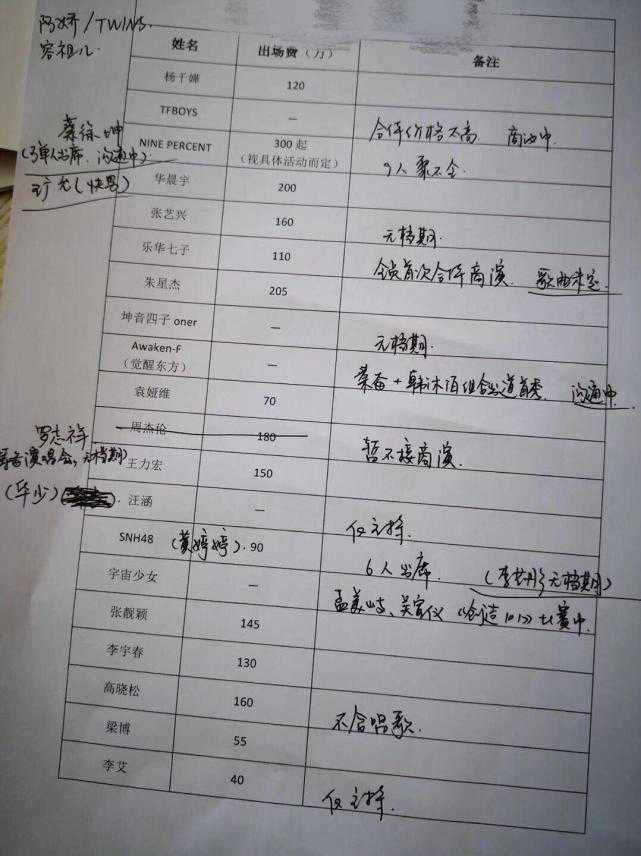 阿娇/TWINS
容祖儿.
姓名 出场费（万） 备注
杨千嬅 120
TFBOYS —
合体价格不高. 商洽中.
蔡徐坤
(3单人出席. 沟通中)
NINE PERCENT 300 起
（视具体活动而定）
9人聚不全.
(快男)
华晨宇 200
张艺兴 160
无档期.
乐华七子 110
全员首次合体商演. 歌曲未定.
朱星杰 205
坤音四子 oner —
无档期.
Awaken-F
（觉醒东方） —
秦奋+韩沐伯组合出道首秀. 沟通中
袁娅维 70
周杰伦 180
暂不接商演.
罗志祥
演唱会,无档期)
王力宏 150
(华少)
汪涵 —
仅主持.
SNH48 (黄婷婷). 90
6人出席. (李艺彤无档期)
宇宙少女 —
孟美岐、吴宣仪《创造101》比赛中.
张靓颖 145
李宇春 130
高晓松 160
不含唱歌.
梁博 55
李艾 40
仅主持.